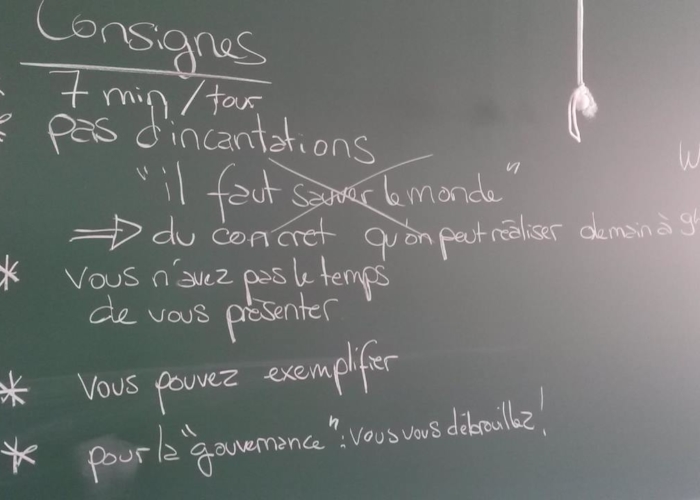 Consignes
7 min / tour
* pas d'incantations
"il faut sauver le monde"
⇒ du concret qu'on peut réaliser demain à 9
* vous n'avez pas le temps
de vous présenter
* vous pouvez exemplifier
* pour la "gouvernance" : vous vous débrouillez !